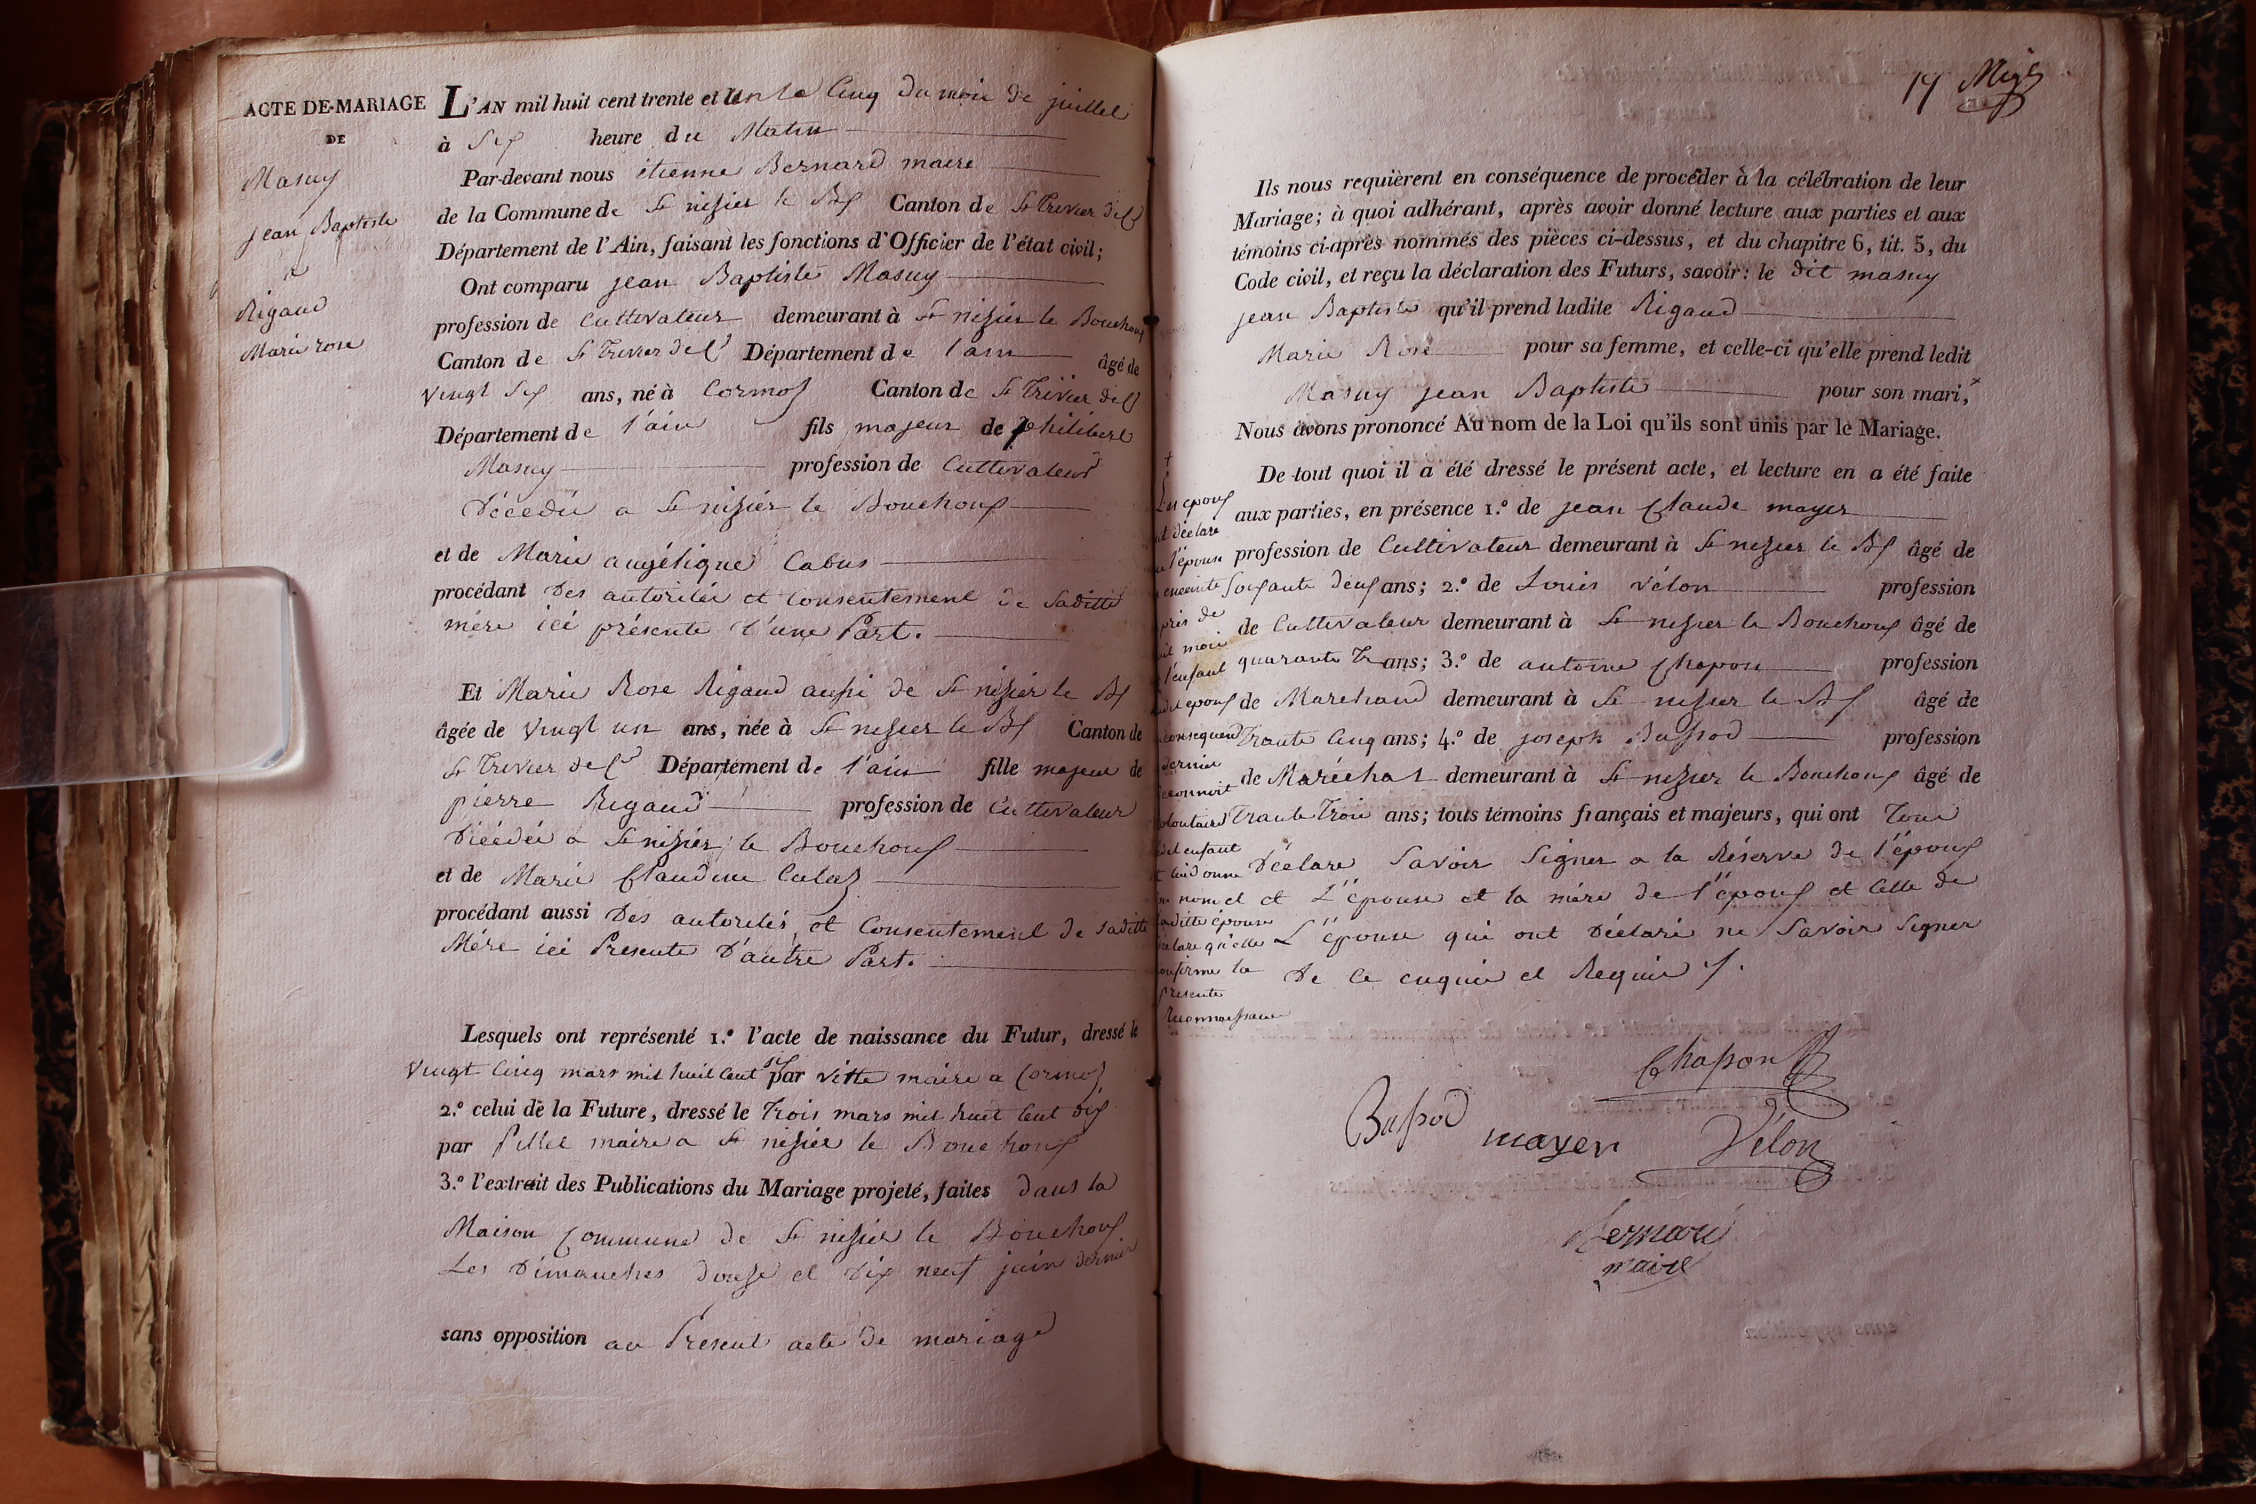 ACTE DE MARIAGE
DE
Masuy
jean Baptiste
a
Rigaud
Marie rose
L'AN mil huit cent trente et Un le Cinq du mois de juillet
à Six heure du Matin
Par-devant nous étienne Bernard maire
de la Commune de St nizier le Bx Canton de St Trivier de Cs
Département de l'Ain, faisant les fonctions d'Officier de l'état civil;
Ont comparu jean Baptiste Masuy
profession de Cultivateur demeurant à St nizier le Bouchoux
Canton de St Trivier de Cs Département de l'ain âgé de
vingt Six ans, né à Cormoz Canton de St Trivier de Cs
Département de l'ain fils majeur de philibert
Masuy profession de Cultivateur
Décédé a St nizier le Bouchoux
et de Marie angélique Cabus
procédant Des autorités et Consentement de Saditte
mère ici présente d'une Part.
Et Marie Rose Rigaud aussi de St nizier le Bx
âgée de vingt un ans, née à St nizier le Bx Canton de
St Trivier de Cs Département de l'ain fille majeur de
pierre Rigaud profession de Cultivateur
Décédé a St nizier le Bouchoux
et de Marie Claudine Calaz
procédant aussi Des autorités et Consentement de saditte
Mère ici Presente D'autre Part.
Lesquels ont représenté 1.º l'acte de naissance du Futur, dressé le
vingt Cinq mars mil huit Cent six par vitte maire a Cormoz
2.º celui de la Future, dressé le Trois mars mil huit Cent dix
par pillet maire a St nizier le Bouchoux
3.º l'extrait des Publications du Mariage projeté, faites dans la
Maison Commune de St nizier le Bouchoux
Les Dimanches douze et Dix neuf juin dernier
sans opposition au Present acte de mariage
Ils nous requièrent en conséquence de procéder à la célébration de leur
Mariage; à quoi adhérant, après avoir donné lecture aux parties et aux
témoins ci-après nommés des pièces ci-dessus, et du chapitre 6, tit. 5, du
Code civil, et reçu la déclaration des Futurs, savoir: le dit masuy
jean Baptiste qu'il prend ladite Rigaud
Marie Rose pour sa femme, et celle-ci qu'elle prend ledit
Masuy jean Baptiste pour son mari,
Nous avons prononcé Au nom de la Loi qu'ils sont unis par le Mariage.
De tout quoi il a été dressé le présent acte, et lecture en a été faite
aux parties, en présence 1.º de jean Claude mayer
profession de Cultivateur demeurant à St nizier le Bx âgé de
Soixante deux ans; 2.º de Louis vélon profession
de Cultivateur demeurant à St nizier le Bouchoux âgé de
quarante ans; 3.º de antoine Chapon profession
de Marchand demeurant à St nizier le Bx âgé de
Trante Cinq ans; 4.º de joseph Bussod profession
de Maréchal demeurant à St nizier le Bouchoux âgé de
Trante Trois ans; tous témoins français et majeurs, qui ont Tous
Déclare Savoir Signer a la Réserve de l'époux
et L'épouse et la mère de l'époux et Celle de
L'épouse qui ont Déclaré ne Savoir Signer
De Ce enquis et Requis
époux
déclare
l'épouse
enceinte
près de
mois
l'enfant
époux
consequend
dernier
reconnoit
enfant
lui donne
nom et
ditte épouse
déclare qu'elle
confirme la
presente
reconnaissance
Chapon
Bussod
mayer
Vélon
Bernard
maire